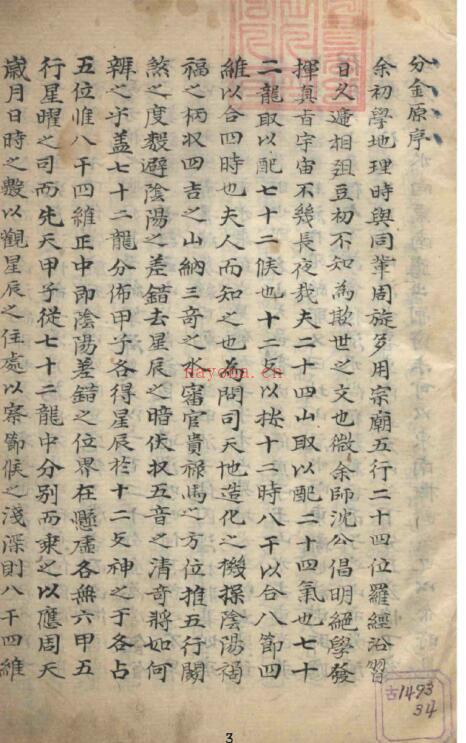 分金原序
余初學地理時與同輩周旋多用宗廟五行二十四位羅經沿習
日久遞相俎豆初不知為欺世之文也微余師沈公倡明絕學發
揮真旨宇宙不幾長夜哉夫二十四山取以配二十四氣也七十
二龍取以配七十二候也十二支以按十二時八干以合八節四
維以合四時也夫人而知之也為問司天地造化之機操陰陽禍
福之柄収四吉之山納三奇之水審官貴祿馬之方位推五行關
煞之度數避陰陽之差錯去星辰之暗伏収五音之清奇將如何
辨之乎蓋七十二龍分佈甲子各得星辰於十二支神之于各占
五位惟八干四維正中即陰陽差錯之位界在懸虛各無六甲五
行星曜之司而先天甲子從七十二龍中分別而乘之以應周天
歲月日時之數以觀星辰之住處以察節候之淺深則八干四維
nayona.cn
古1493
34
3